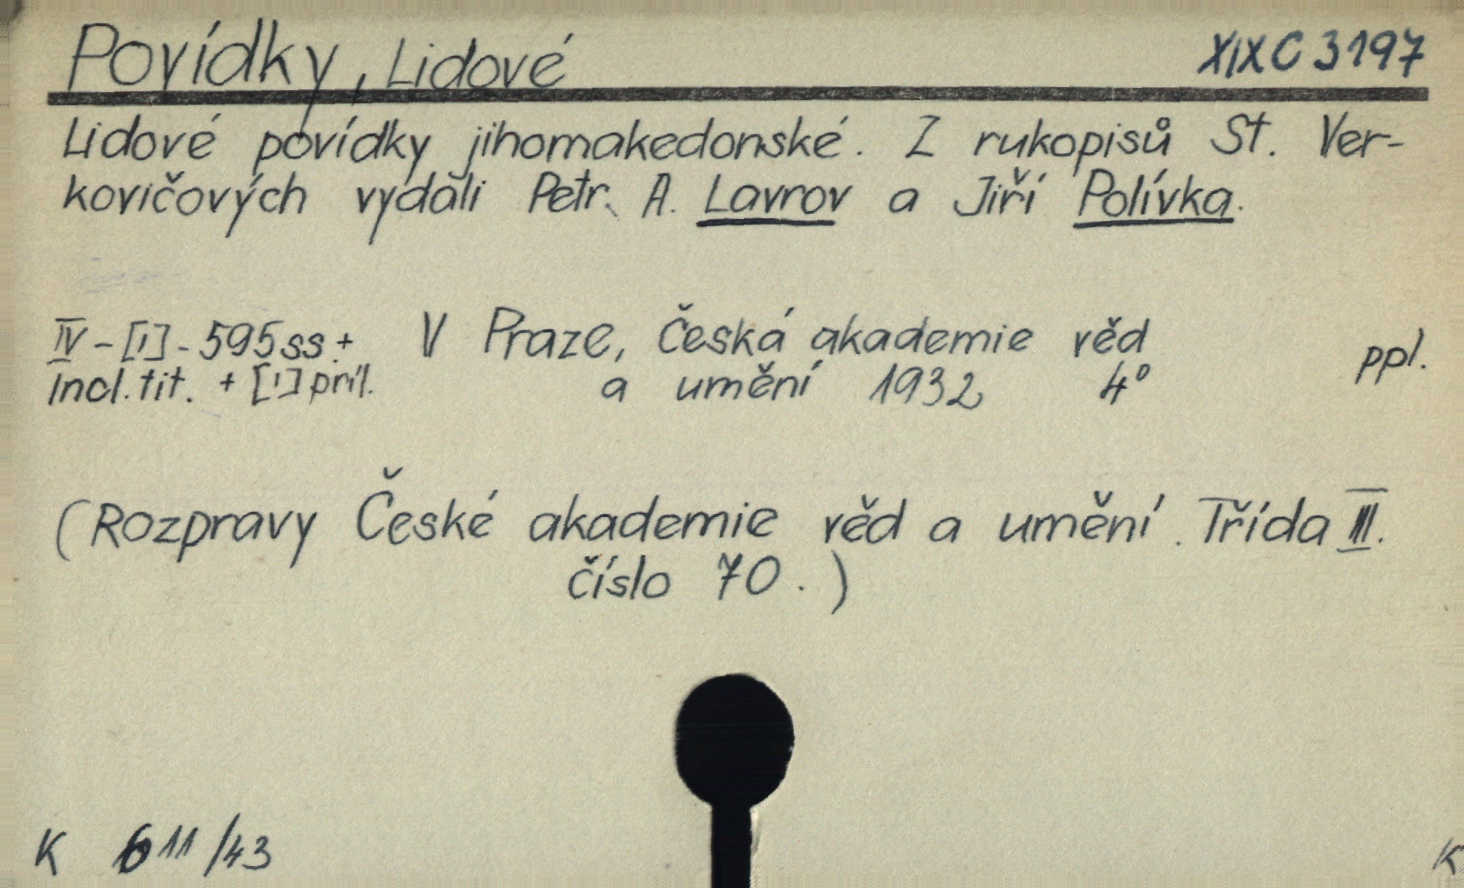 Povídky, Lidové
XIX C 3197
Lidové povídky jihomakedonské. Z rukopisů St. Ver-
kovičových vydali Petr. A. Lavrov a Jiří Polívka.
IV - [1] - 595 ss + V Praze, Česká akademie věd ppl.
incl. tit. + [1] příl. a umění 1932 4°
(Rozpravy České akademie věd a umění. Třída III.
číslo 70.)
K 611/43
K